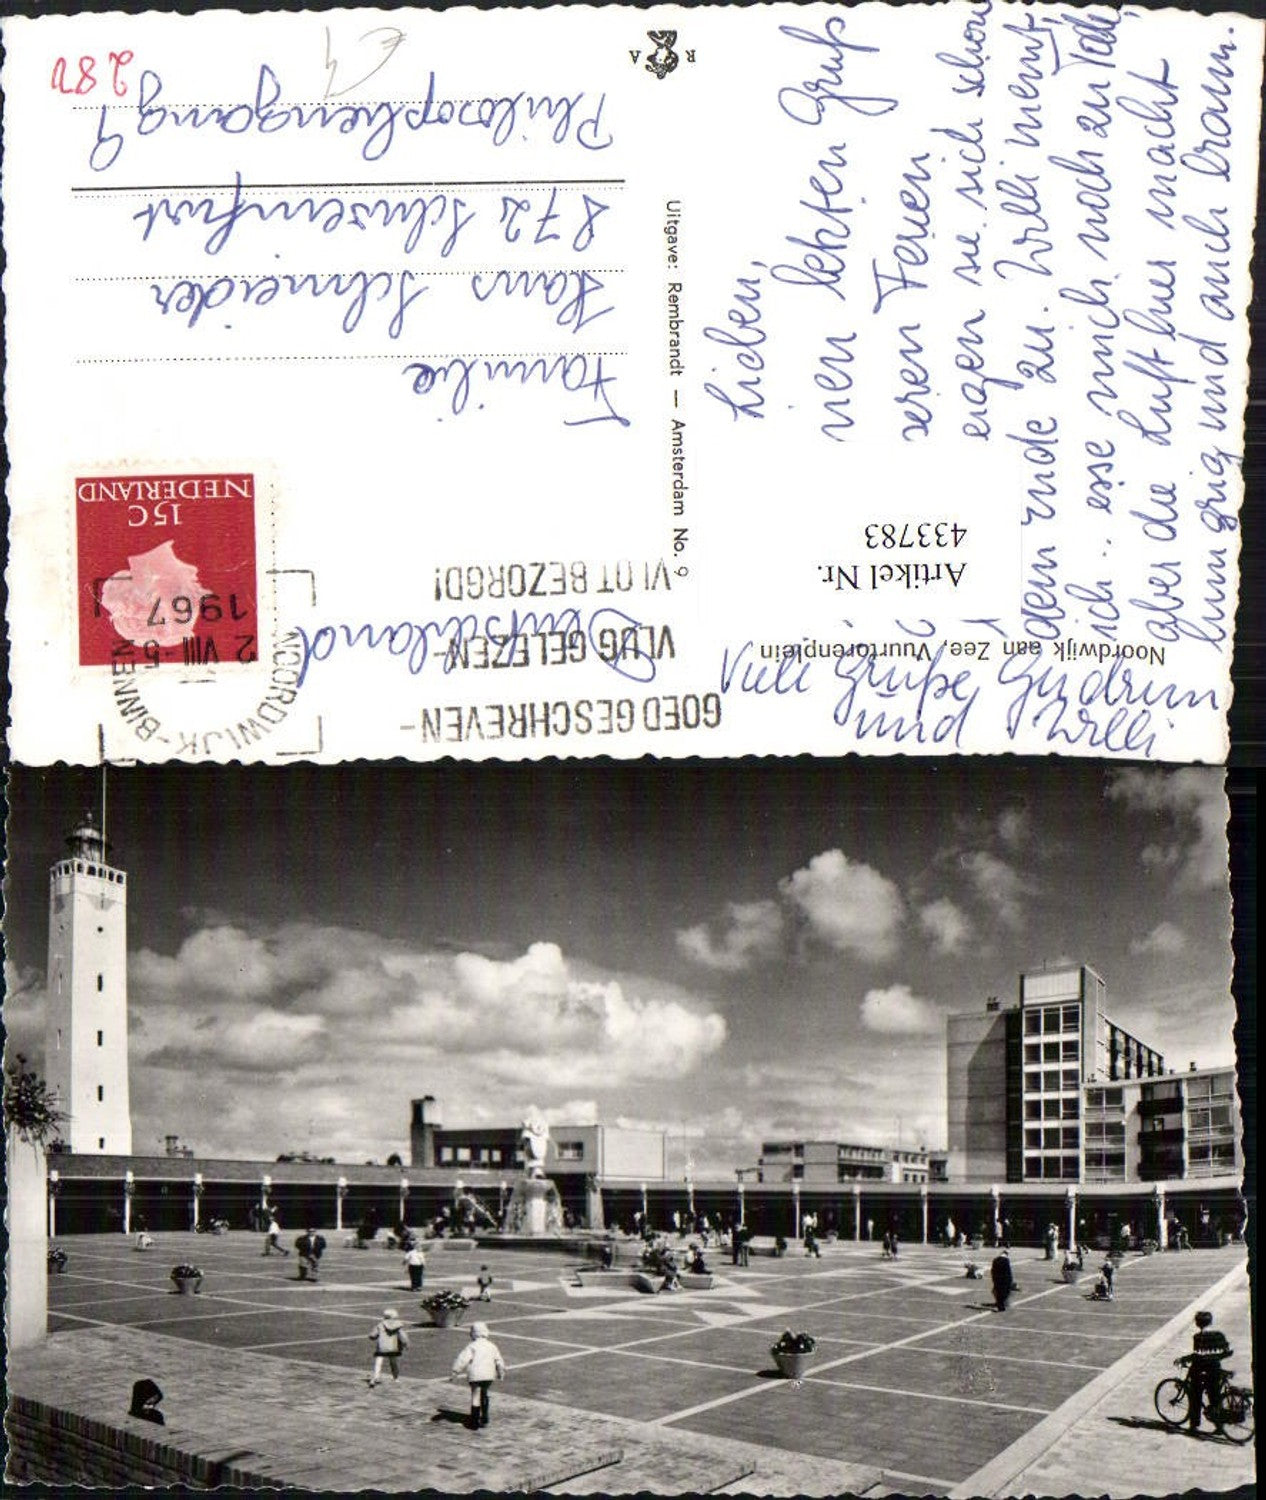 Noordwijk aan Zee, Vuurtorenplein
Lieben,
nen letzten Gruß
seren Ferien
eigen sie sich schon
dem Ende zu. Willi nennt,
ich.. esse mich noch zu Tode,
aber die Luft hier macht
hungrig und auch braun.
Viele Grüße, Gudrun
und Willi
Artikel Nr.
433783
Uitgave: Rembrandt — Amsterdam No. 9
R A
GOED GESCHREVEN-
VLUG GELEZEN-
VLOT BEZORGD!
NOORDWIJK-BINNEN
2 VIII -5
1967
NEDERLAND
15C
Familie
Hans Schneider
872 Schweinfurt
Philosophengang 9
Deutschland
280